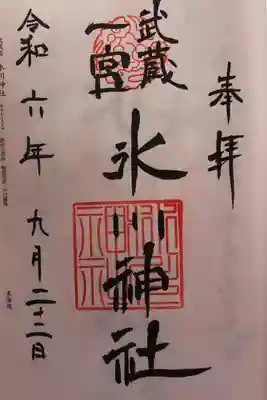 奉拝
武蔵
一宮
氷川神社
令和六年九月二十二日